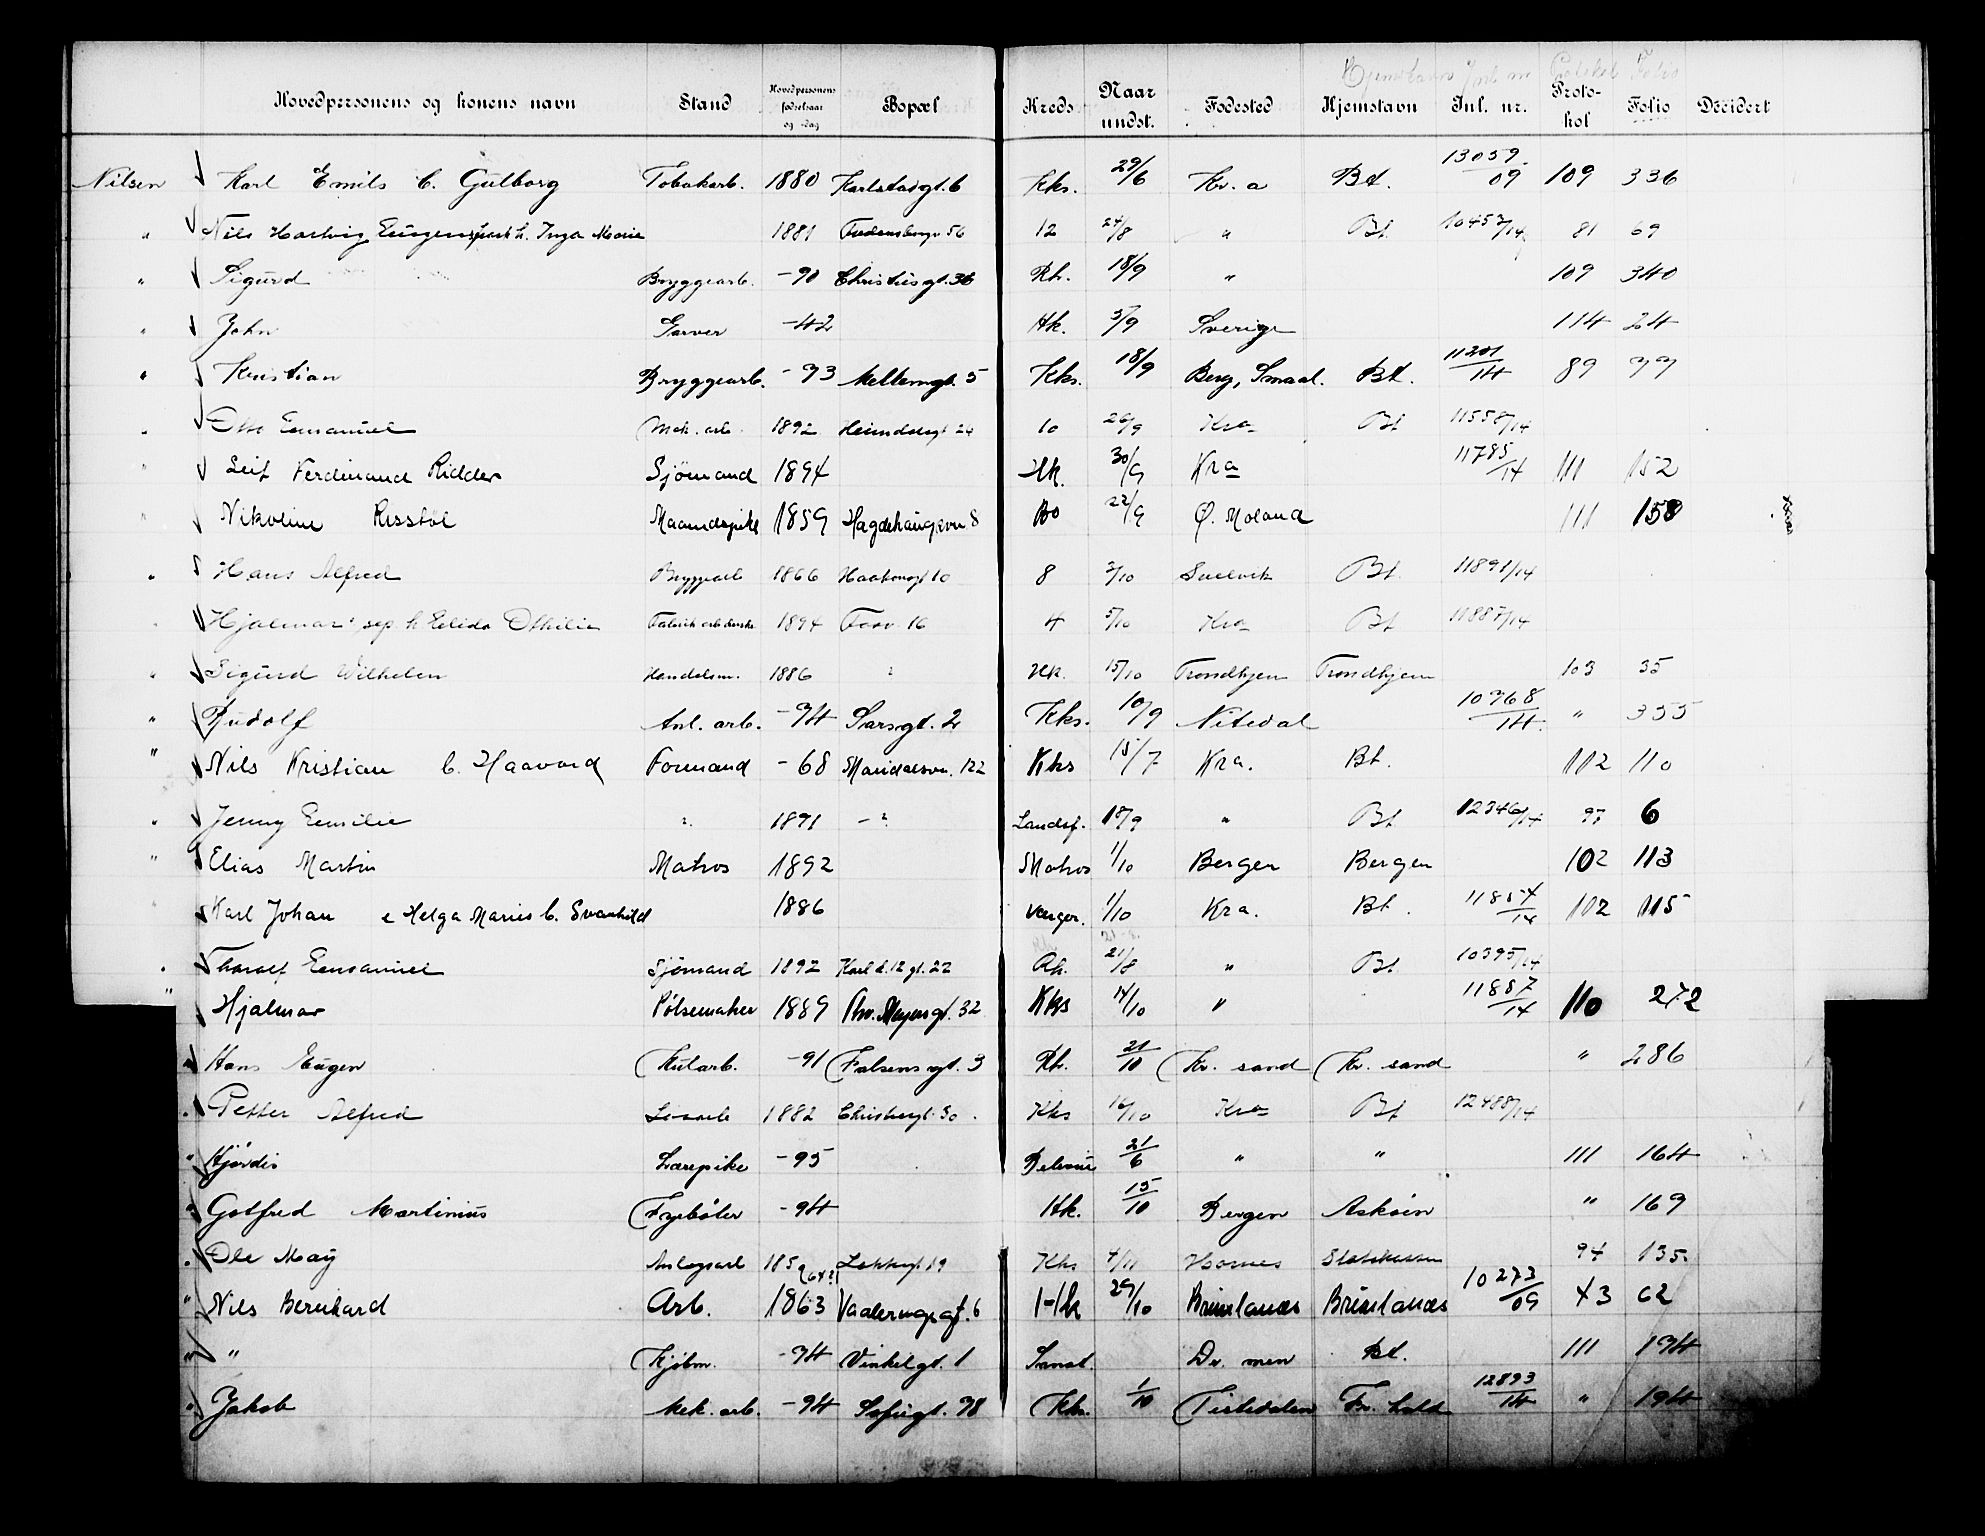 Hjemstavn Jnl. nr. Protokol Folio
Hovedpersonens og konens navn Stand Hovedpersonens fødselsaar og -dag Bopæl Kreds Naar undst. Fødested Hjemstavn Jnl. nr. Protokol Folio Decidert
Nilsen Karl Emils b. Gulborg Tobakarb. 1880 Karlstadgt. 6 Kks. 29/6 Kr.a Bt. 13059/09 109 336
" Nils Hartvig Eugen h. Inga Marie 1881 56 12 24/8 " Bt 10453/14 81 69
" Sigurd Bryggearb. -90 Christiesgt. 36 Rh. 18/9 " 109 340
" John Garver -42 Hk. 3/9 Sverige 114 24
" Kristian Bryggearb. -93 Mellemgt. 5 Kks. 18/9 Berg, Smaal. Bt. 11201/14 89 99
" Otto Emanuel Mek. arb. 1892 Heimdalsgt 24 10 26/9 Kra Bt 11558/14
" Leif Ferdinand Ridder Sjömand 1894 Hk. 30/9 Kra 11785/14 111 152
" Nikoline Risstøl Maanedspike 1859 Hegdehaugsvn 8 Bo 22/9 Ø. Moland 111 158
" Hans Alfred Bryggearb 1866 Haakonsgt 10 8 2/10 Svelvik Bt. 11891/14
" Hjalmar sep. h Elida Othilie Fabrik arb 1894 Fossv. 16 4 5/10 Kra Bt 11887/14
" Sigurd Wilhelm Handelsm. 1886 ? Hk. 15/10 Trondhjem Trondhjem 103 35
" Rudolf Anl. arb. -94 Sarsgt. 2 Kks. 10/9 Nitedal 10968/14 " 355
" Nils Kristian b. Haavard Formand -68 Maridalsvn. 122 Kks 15/7 Kra. Bt. 102 110
" Jenny Emilie ? 1891 -? Landsf. 18/9 " Bt 12346/14 97 6
" Elias Martin Matros 1892 Matros 1/10 Bergen Bergen 102 113
" Karl Johan e Helga Maries b. Svanhild 1886 Værger. 1/10 Kra. Bt. 11857/14 102 115
" Thoralf Emanuel Sjømand 1892 Karl d. 12 gt. 22 Rh. 21/8 " Bt 10395/14
" Hjalmar Pølsemaker 1889 Thv. Meyersgt. 32 Kks 14/10 " 11887/14 110 272
" Hans Eugen Kularb. -91 Falsensgt. 3 Rh. 21/10 Kr. sand Kr. sand " 286
" Petter Alfred Løsarb 1882 Christiesgt. 30 Kks 16/10 Kra Bt 12488/14
" Hjördis Lærepike -95 21/6 " " 111 164
" Gotfred Martinius Fyrbøter -94 Hk. 15/10 Bergen Askøen " 169
" Ole May Anlegsarb 1859 (64?) Lakkegt 19 Kks 4/11 Hornes Statskassen 94 135
" Nils Bernhard Arb. 1863 Vaalerenggt. 6 Hk 29/10 Brunlanæs Brunlanæs 10273/09 43 62
" " Kjøbm. -94 Vinkelgt. 1 Sanat. Dr. men Bt. 111 194
" Jakob Mek. arb. -94 Sofiegt. 78 Kks. 1/10 Tistedalen Fr. hald 12893/14 " 194